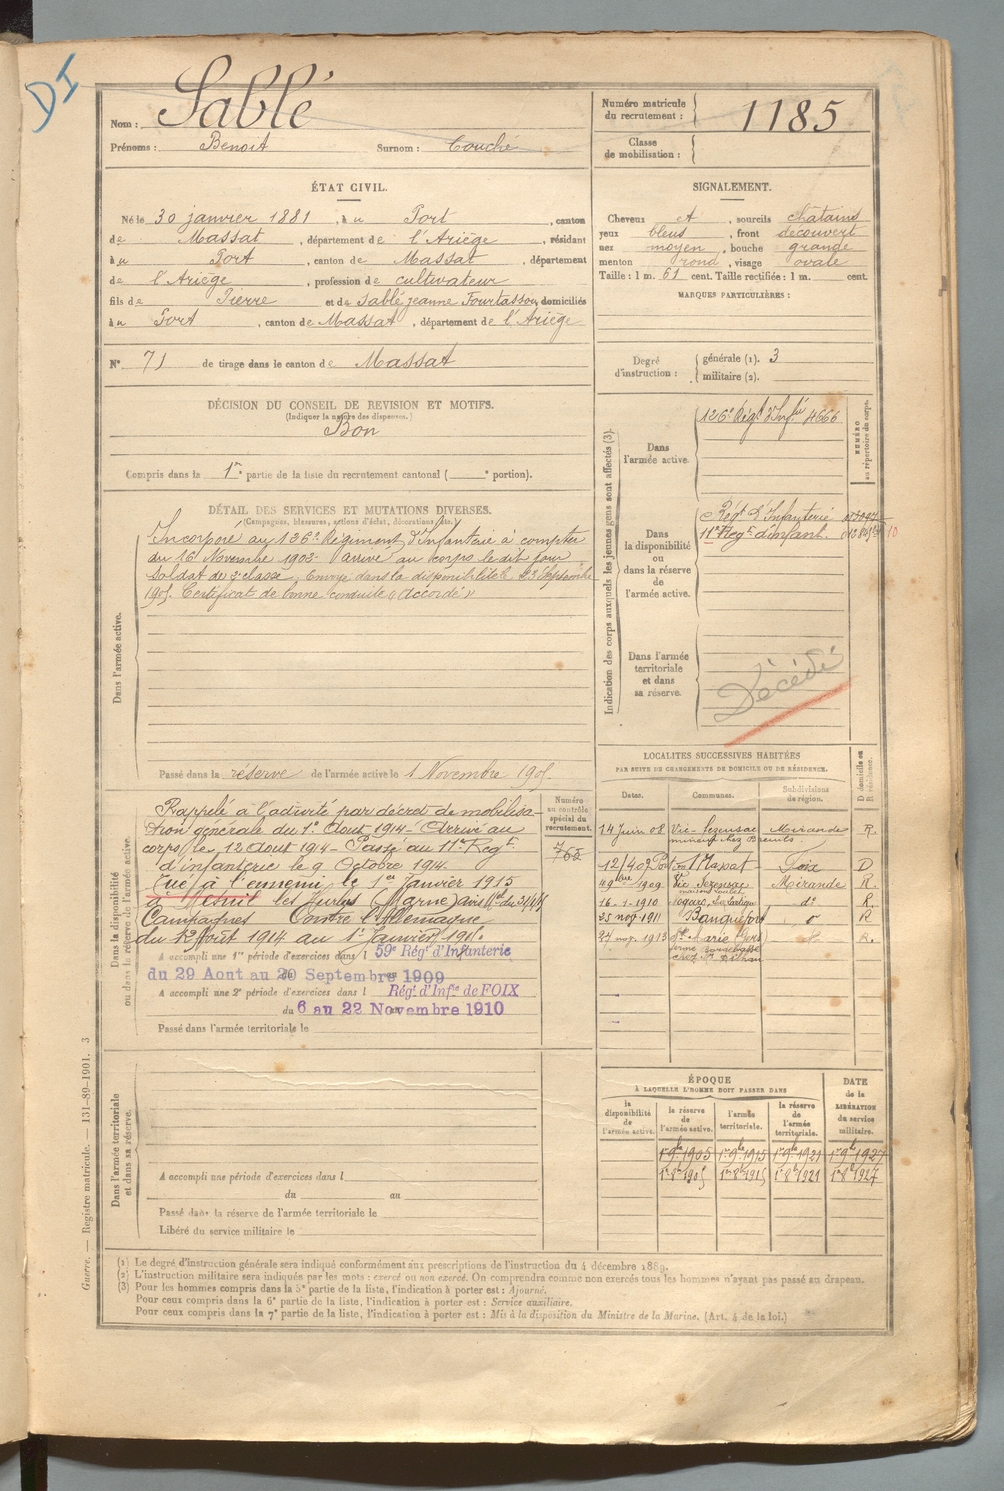 DI
Nom : Sablé
Prénoms : Benoit Surnom : Couché
Numéro matricule du recrutement : 1185
Classe de mobilisation :
ÉTAT CIVIL.
Né le 30 janvier 1881, à u Port, canton
de Massat, département de l'Ariége, résidant
à u Port, canton de Massat, département
de l'Ariège, profession de cultivateur
fils de Pierre et de Sablé jeanne Fourtassou, domiciliés
à u Port, canton de Massat, département de l'Ariége
N° 71 de tirage dans le canton de Massat
SIGNALEMENT.
Cheveux et, sourcils châtains
yeux bleus, front découvert
nez moyen, bouche grande
menton rond, visage ovale
Taille : 1 m. 61 cent. Taille rectifiée : 1 m. cent.
MARQUES PARTICULIÈRES :
Degré d'instruction : générale (1). 3
militaire (2).
DÉCISION DU CONSEIL DE REVISION ET MOTIFS.
(Indiquer la nature des dispenses.)
Bon
Compris dans la 1re partie de la liste du recrutement cantonal ( e portion).
DÉTAIL DES SERVICES ET MUTATIONS DIVERSES.
(Campagnes, blessures, actions d'éclat, décorations, etc.)
Dans l'armée active.
Incorporé au 126e Régiment d'Infanterie à compter
du 16 Novembre 1902. Arrivé au corps le dit jour
soldat de 2e classe. Envoyé dans la disponibilité le 23 Septembre
1905. Certificat de bonne conduite "Accordé"
Passé dans la réserve de l'armée active le 1 Novembre 1905.
Indication des corps auxquels les jeunes gens sont affectés (3).
NUMÉRO au répertoire du corps.
Dans l'armée active.
126e Régt d'Infie 4666
Dans la disponibilité ou dans la réserve de l'armée active.
Régt d'Infanterie
11e Régt d'Infant.
Dans l'armée territoriale et dans sa réserve.
Décédé
Dans la disponibilité ou dans la réserve de l'armée active.
Numéro au contrôle spécial du recrutement.
765
Rappelé à l'activité par décret de mobilisa-
tion générale du 1er Aout 1914 - Arrivé au
corps le 12 Aout 1914 - Passé au 11e Régt
d'infanterie le 9 Octobre 1914.
Tué à l'ennemi le 1er Janvier 1915
à Mesnil les Hurlus (Marne)
Campagnes Contre l'Allemagne
du 12 Août 1914 au 1er Janvier
A accompli une 1re période d'exercices dans l 59e Régt d'Infanterie
du 29 Aout au 20 Septembre 1909
A accompli une 2e période d'exercices dans l Régt d'Infie de FOIX
du 6 au 22 Novembre 1910
Passé dans l'armée territoriale le
LOCALITÉS SUCCESSIVES HABITÉES
PAR SUITE DE CHANGEMENTS DE DOMICILE OU DE RÉSIDENCE.
Dates. Communes. Subdivisions de région. D domicile ou R résidence.
14 Juin 08 Vic-Fezensac Mirande R.
Massat Foix D
1909 Vic Fezensac Mirande R.
16-1-1910 Nogaro do R.
25 nov. 1911 R
27 nov. 1913 Ste Marie Gers R.
Dans l'armée territoriale et dans sa réserve.
A accompli une période d'exercices dans l
du au
Passé dans la réserve de l'armée territoriale le
Libéré du service militaire le
ÉPOQUE
À LAQUELLE L'HOMME DOIT PASSER DANS
la disponibilité de l'armée active. la réserve de l'armée active. l'armée territoriale. la réserve de l'armée territoriale. DATE de la LIBÉRATION du service militaire.
1er 9bre 1905 1er 9bre 1915 1er 9bre 1921 1er 9bre 1927
1er 8bre 1905 1er 8bre 1915 1er 8bre 1921 1er 8bre 1927
(1) Le degré d'instruction générale sera indiqué conformément aux prescriptions de l'instruction du 4 décembre 1889.
(2) L'instruction militaire sera indiquée par les mots : exercé ou non exercé. On comprendra comme non exercés tous les hommes n'ayant pas passé au drapeau.
(3) Pour les hommes compris dans la 5e partie de la liste, l'indication à porter est : Ajourné.
Pour ceux compris dans la 6e partie de la liste, l'indication à porter est : Service auxiliaire.
Pour ceux compris dans la 7e partie de la liste, l'indication à porter est : Mis à la disposition du Ministre de la Marine. (Art. 4 de la loi.)
Guerre. — Registre matricule. — 131-89-1901. 3